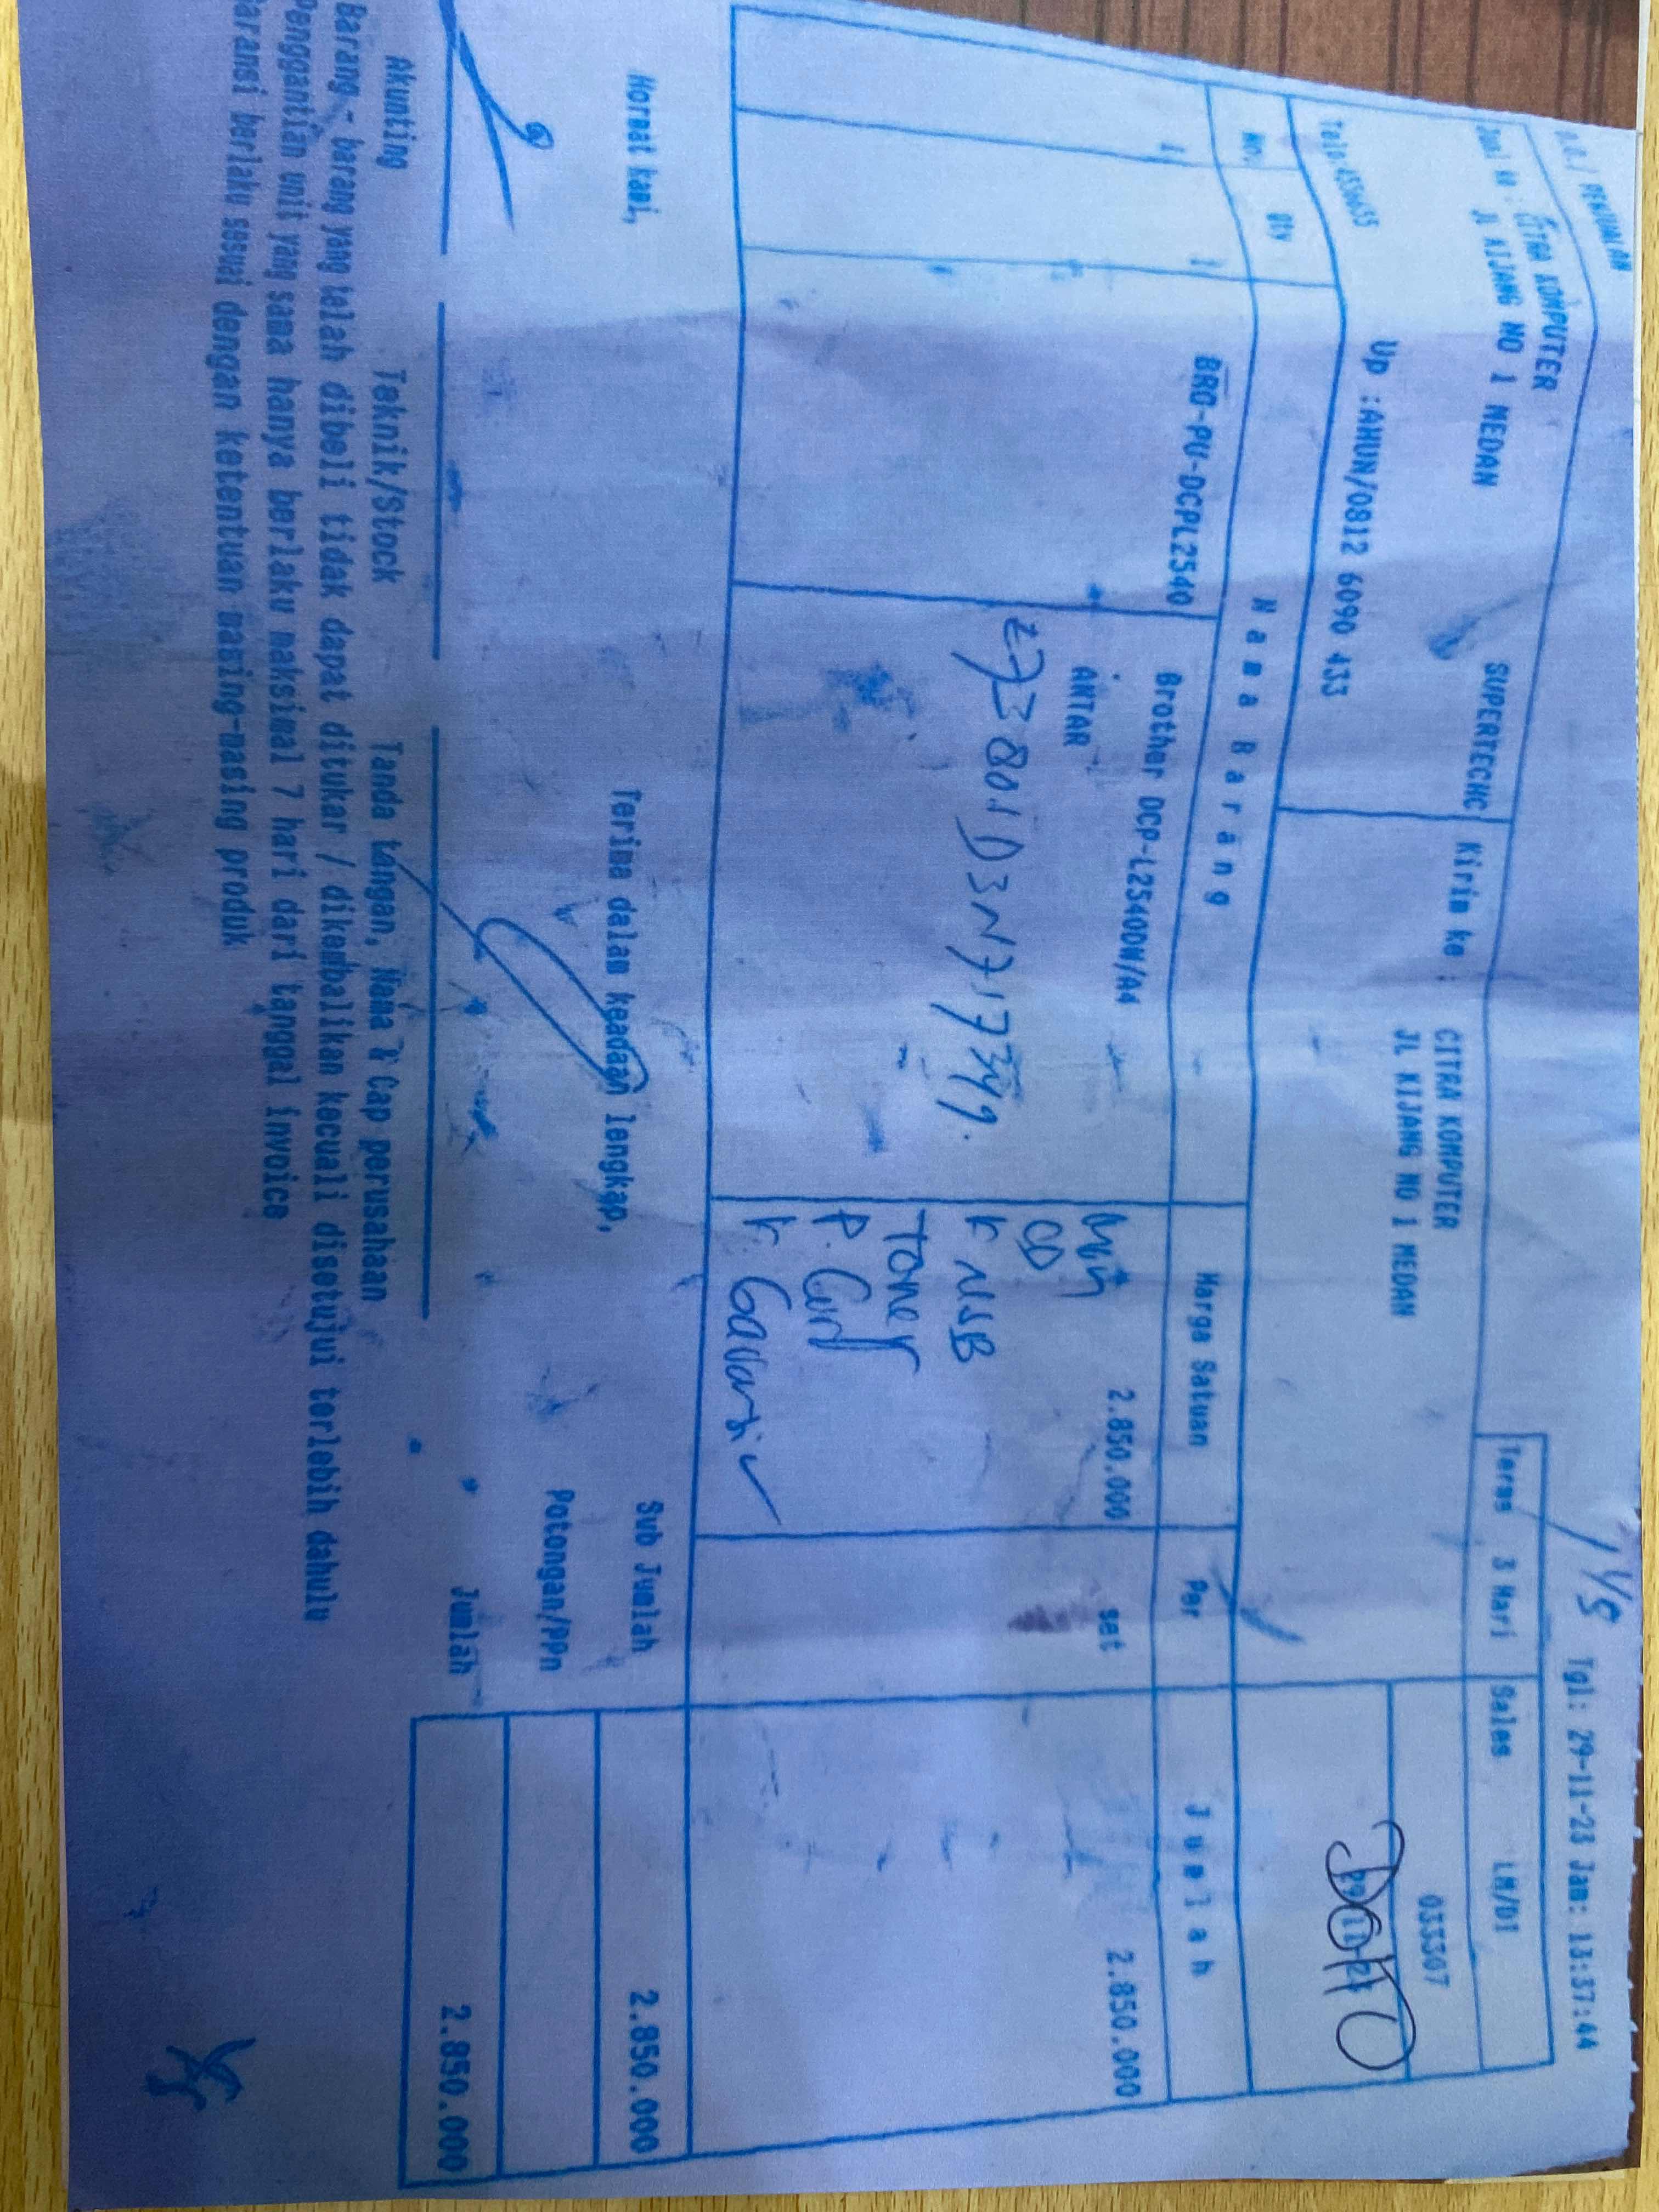 D.O./ PENJUALAN
Tgl: 29-11-23 Jam: 13:37:44
Jual ke : CITRA KOMPUTER SUPERTECHC
JL KIJANG NO 1 MEDAN
Kirim ke :
CITRA KOMPUTER
JL KIJANG NO 1 MEDAN
Terms 3 Hari
Sales LM/DI
033307
Telp:4556655 Up :AHUN/0812 6090 433
No. Qty Nama Barang Harga Satuan Per Jumlah
1 1 BRO-PU-DCPL2540 Brother DCP-L2540DW/A4 2.850.000 set 2.850.000
ANTAR
CD
K USB
Toner
K. Garansi
Hormat kami,
Terima dalam keadaan lengkap,
Sub Jumlah 2.850.000
Potongan/PPn
Jumlah 2.850.000
Akunting Teknik/Stock Tanda tangan, Nama & Cap perusahaan
Barang - barang yang telah dibeli tidak dapat ditukar / dikembalikan kecuali disetujui terlebih dahulu
Penggantian unit yang sama hanya berlaku maksimal 7 hari dari tanggal invoice
Garansi berlaku sesuai dengan ketentuan masing-masing produk